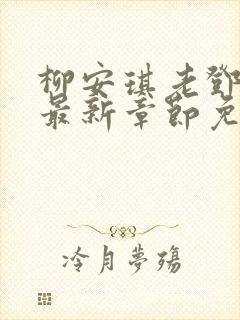 柳安琪老鄧
最新章節免
冷月夢殤